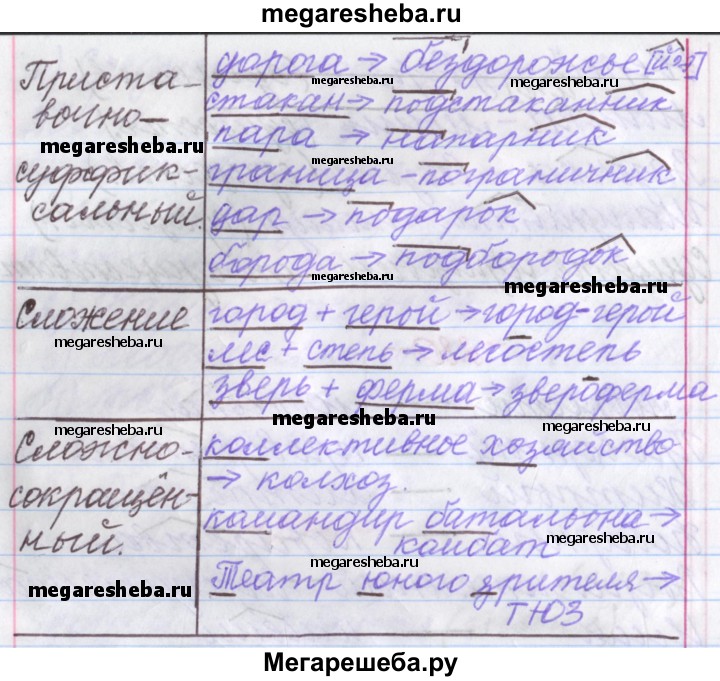 megaresheba.ru
Приста-
вочно-
суффик-
сальный.
дорога → бездорожье [й'э]
megaresheba.ru
стакан → подстаканник
пара → напарник
megaresheba.ru
megaresheba.ru
граница - пограничник
дар → подарок
борода → подбородок
megaresheba.ru
megaresheba.ru
Сложение
megaresheba.ru
город + герой → город-герой
лес + степь → лесостепь
megaresheba.ru
зверь + ферма → звероферма
megaresheba.ru
megaresheba.ru
Сложно-
сокращён-
ный.
коллективное хозяйство
→ колхоз.
командир батальона →
комбат
megaresheba.ru
megaresheba.ru
megaresheba.ru
Театр юного зрителя →
ТЮЗ
Мегарешеба.ру